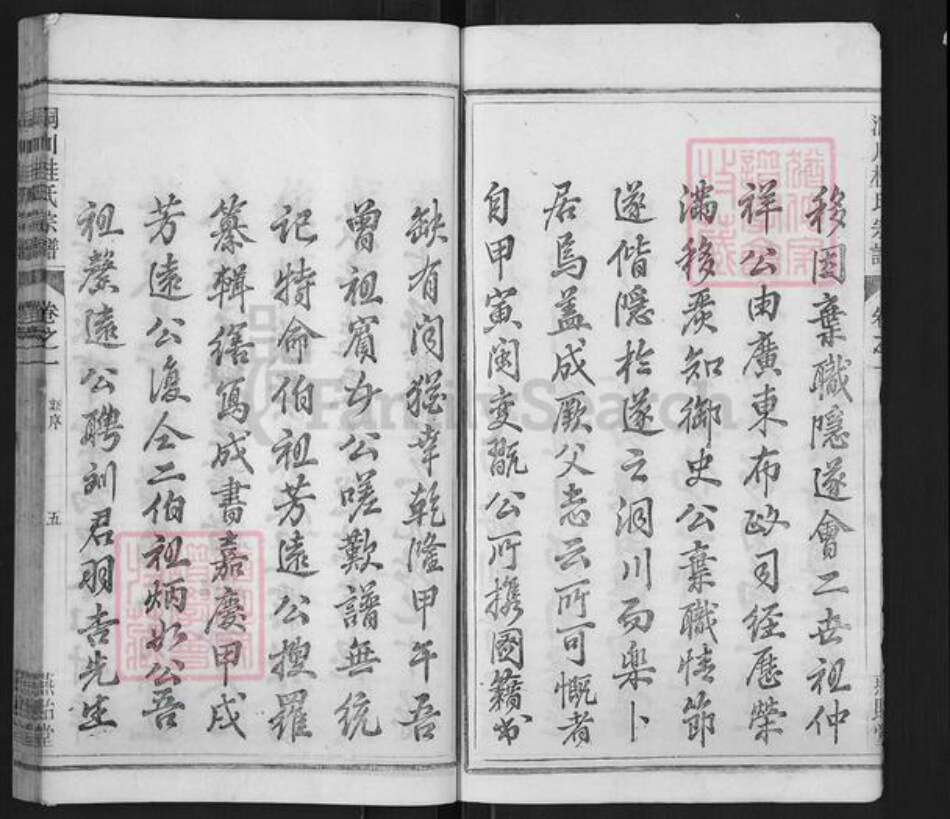 移因棄職隱遂會二世祖仲
祥公由廣東布政司經歷榮
滿移羨知御史公棄職情節
遂偕隱於遂之洞川而樂卜
居焉蓋成厥父志云所可慨者
自甲寅閩變翫公所攜國籍
缺有間猶幸乾隆甲午吾
曾祖賓公嗟歎譜無統
記特命伯祖芳遠公搜羅
纂輯繕寫成書嘉慶甲戌
芳遠公復仝二伯祖炳如公吾
祖馨遠公聘訓君羽吉先生
洞川桂氏宗譜 卷之一 序 五 燕貽堂
FamilySearch